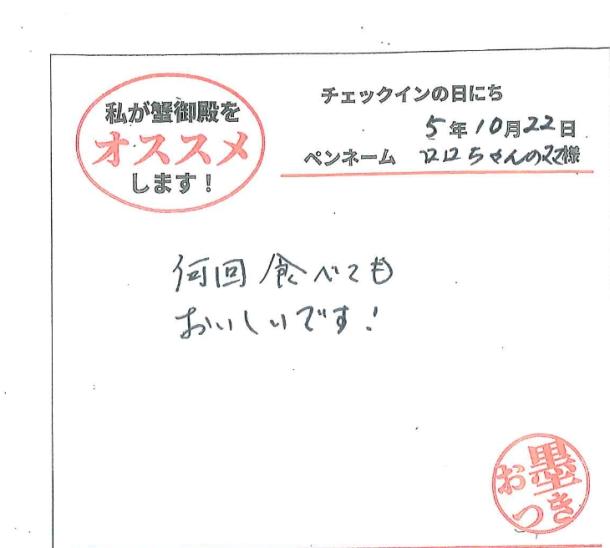 私が蟹御殿を
オススメ
します！
チェックインの日にち
5年10月22日
ペンネーム ロロちゃんのママ様
何回食べても
おいしいです！
お墨
つき